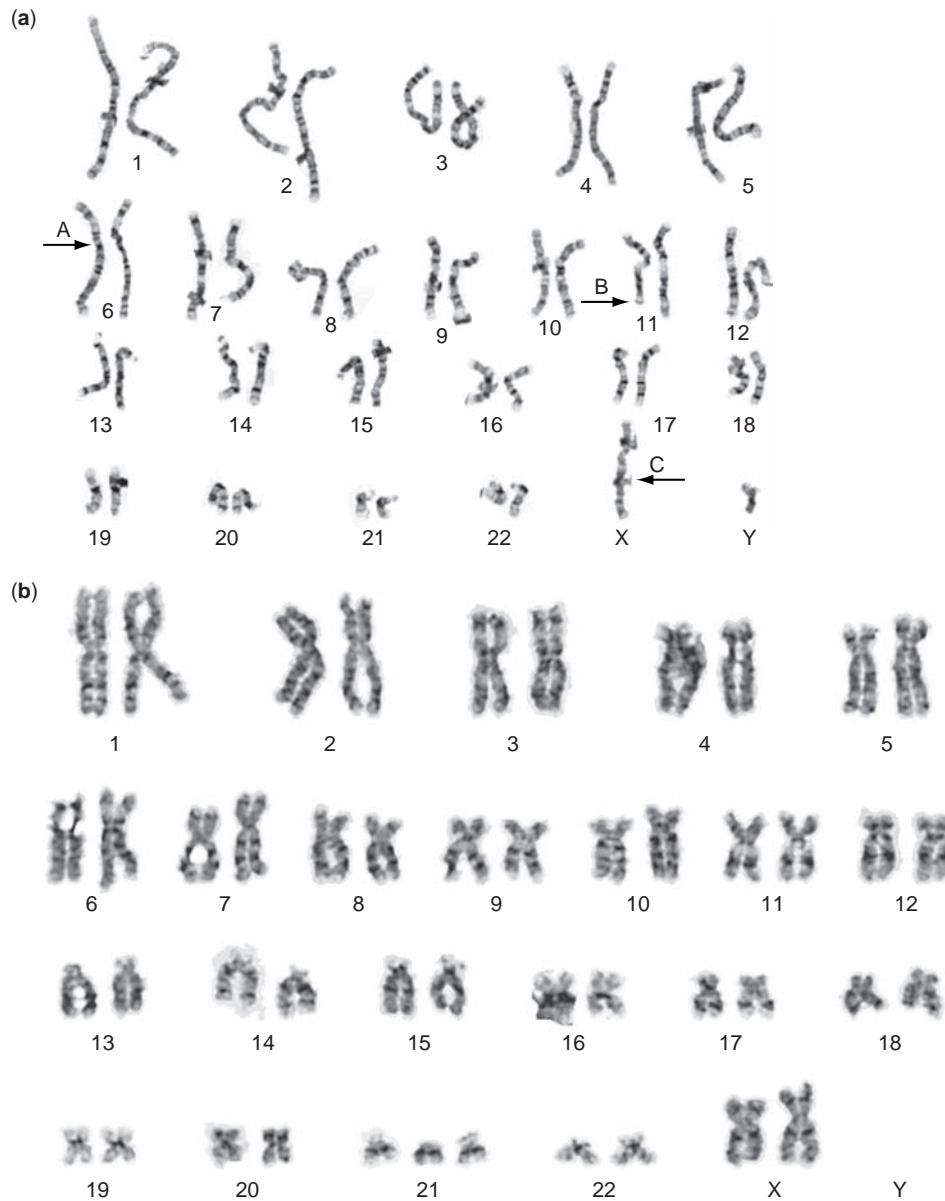 (a)
1 2 3 4 5
A
B
6 7 8 9 10 11 12
13 14 15 16 17 18
C
19 20 21 22 X Y
(b)
1 2 3 4 5
6 7 8 9 10 11 12
13 14 15 16 17 18
19 20 21 22 X Y